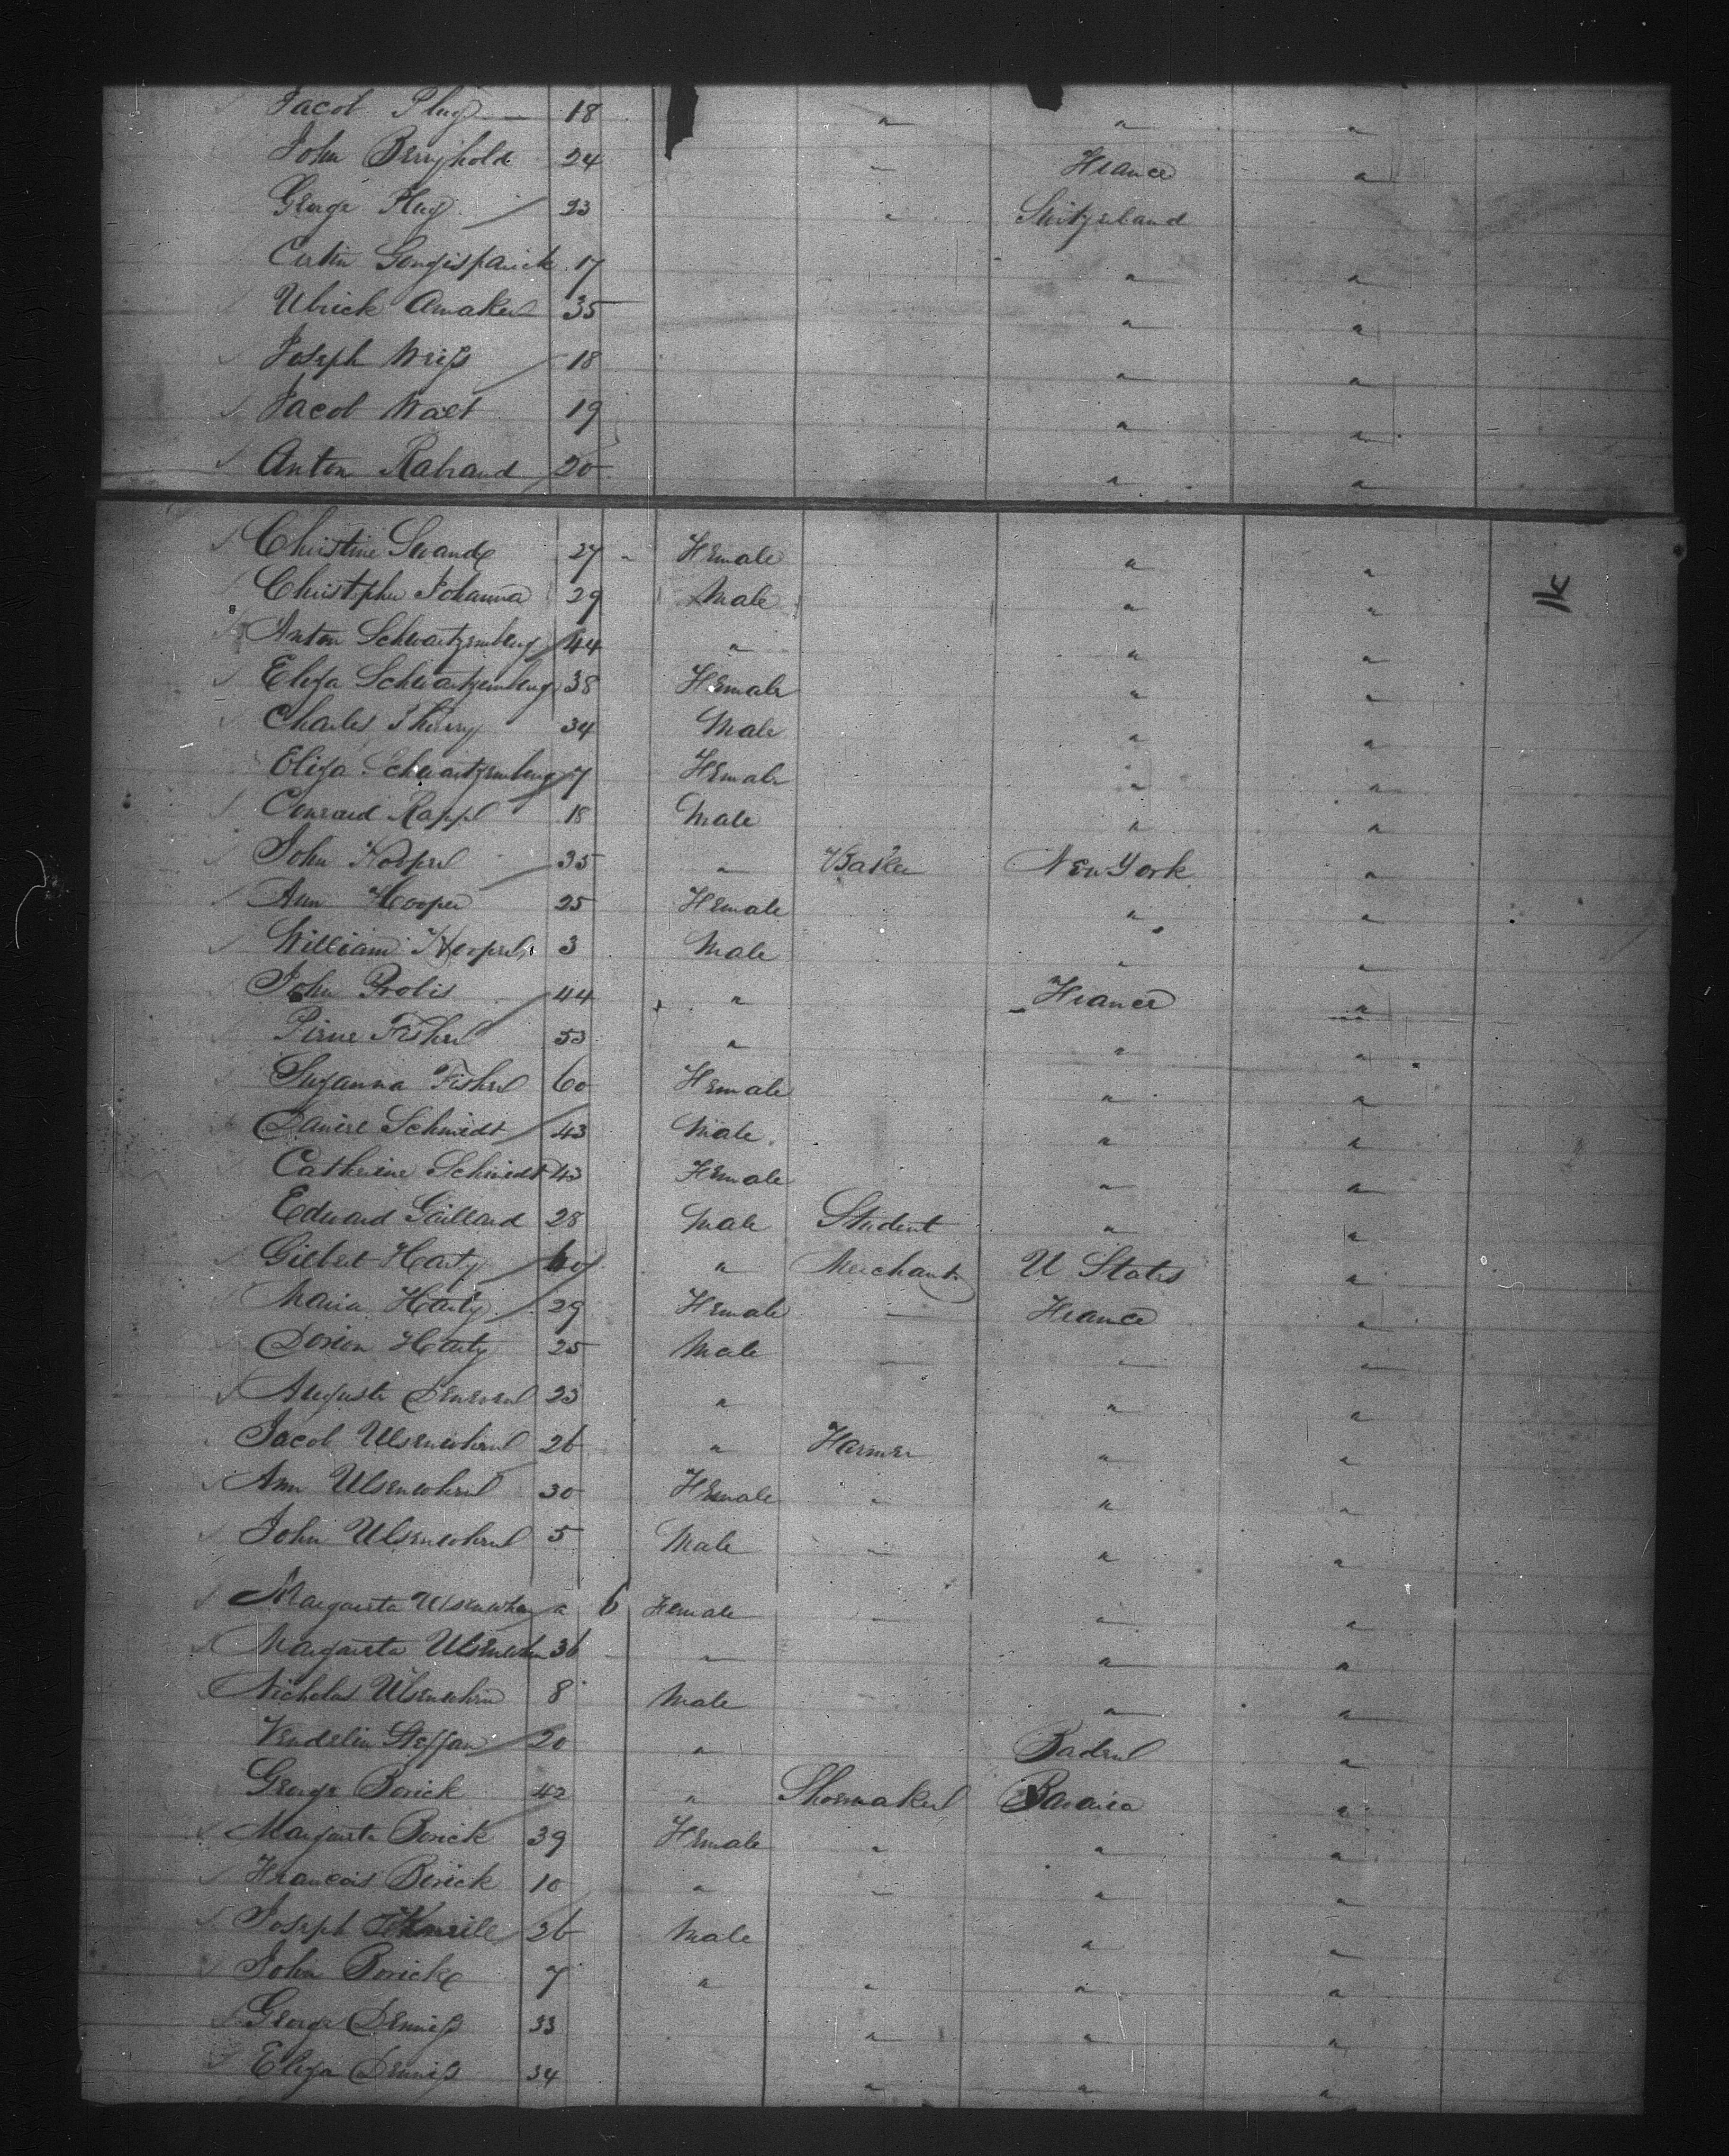 Jacob Plug 18 " " "
John Berryhold 24 " France "
George Plug 23 " Switzerland
17 " "
Ulrick Amaker 35 " "
Joseph Weiss 18 " "
Jacob Walt 19 " "
Anton Rabrand 20 " "
Christine 27 Female " "
Christopher Johanna 29 Male " "
Anton Schwartzemberg 44 " " "
Eliza Schwartzemberg 38 Female " "
Charles Thierry 34 Male " "
Eliza Schwartzemberg 7 Female " "
Conrad Rappl 18 Male " "
John Hooper 35 " Baker New York "
Ann Hooper 25 Female " "
William Hooper 3 Male " "
John Probis 44 " France "
Pierre Fisher 53 " " "
Suzanna Fisher 60 Female " "
Daniel Schmidt 43 Male " "
Catherine Schmidt 43 Female " "
Edward Gaillard 28 Male Student " "
Gilbert Harty 60 " Merchant U States "
Maria Harty 29 Female — France "
Dorion Harty 25 Male — " "
Auguste 23 " " "
Jacob Ulsenwherd 26 " Farmer " "
Ann Ulsenwherd 30 Female " " "
John Ulsenwherd 5 Male " " "
Margareta Ulsenwher a 6 Female — " "
Margareta Ulsenwher 36 " " "
Nicholas Ulsenwher 8 Male " "
Vendelin Steffan 20 " Baden "
George Borick 42 " Shoemaker Bavaria "
Margareta Borick 39 Female " " "
Francois Borick 10 " " " "
Joseph 26 Male " "
John Borick 7 " " " "
George Denniss 33 " " "
Eliza Denniss 34 " " "